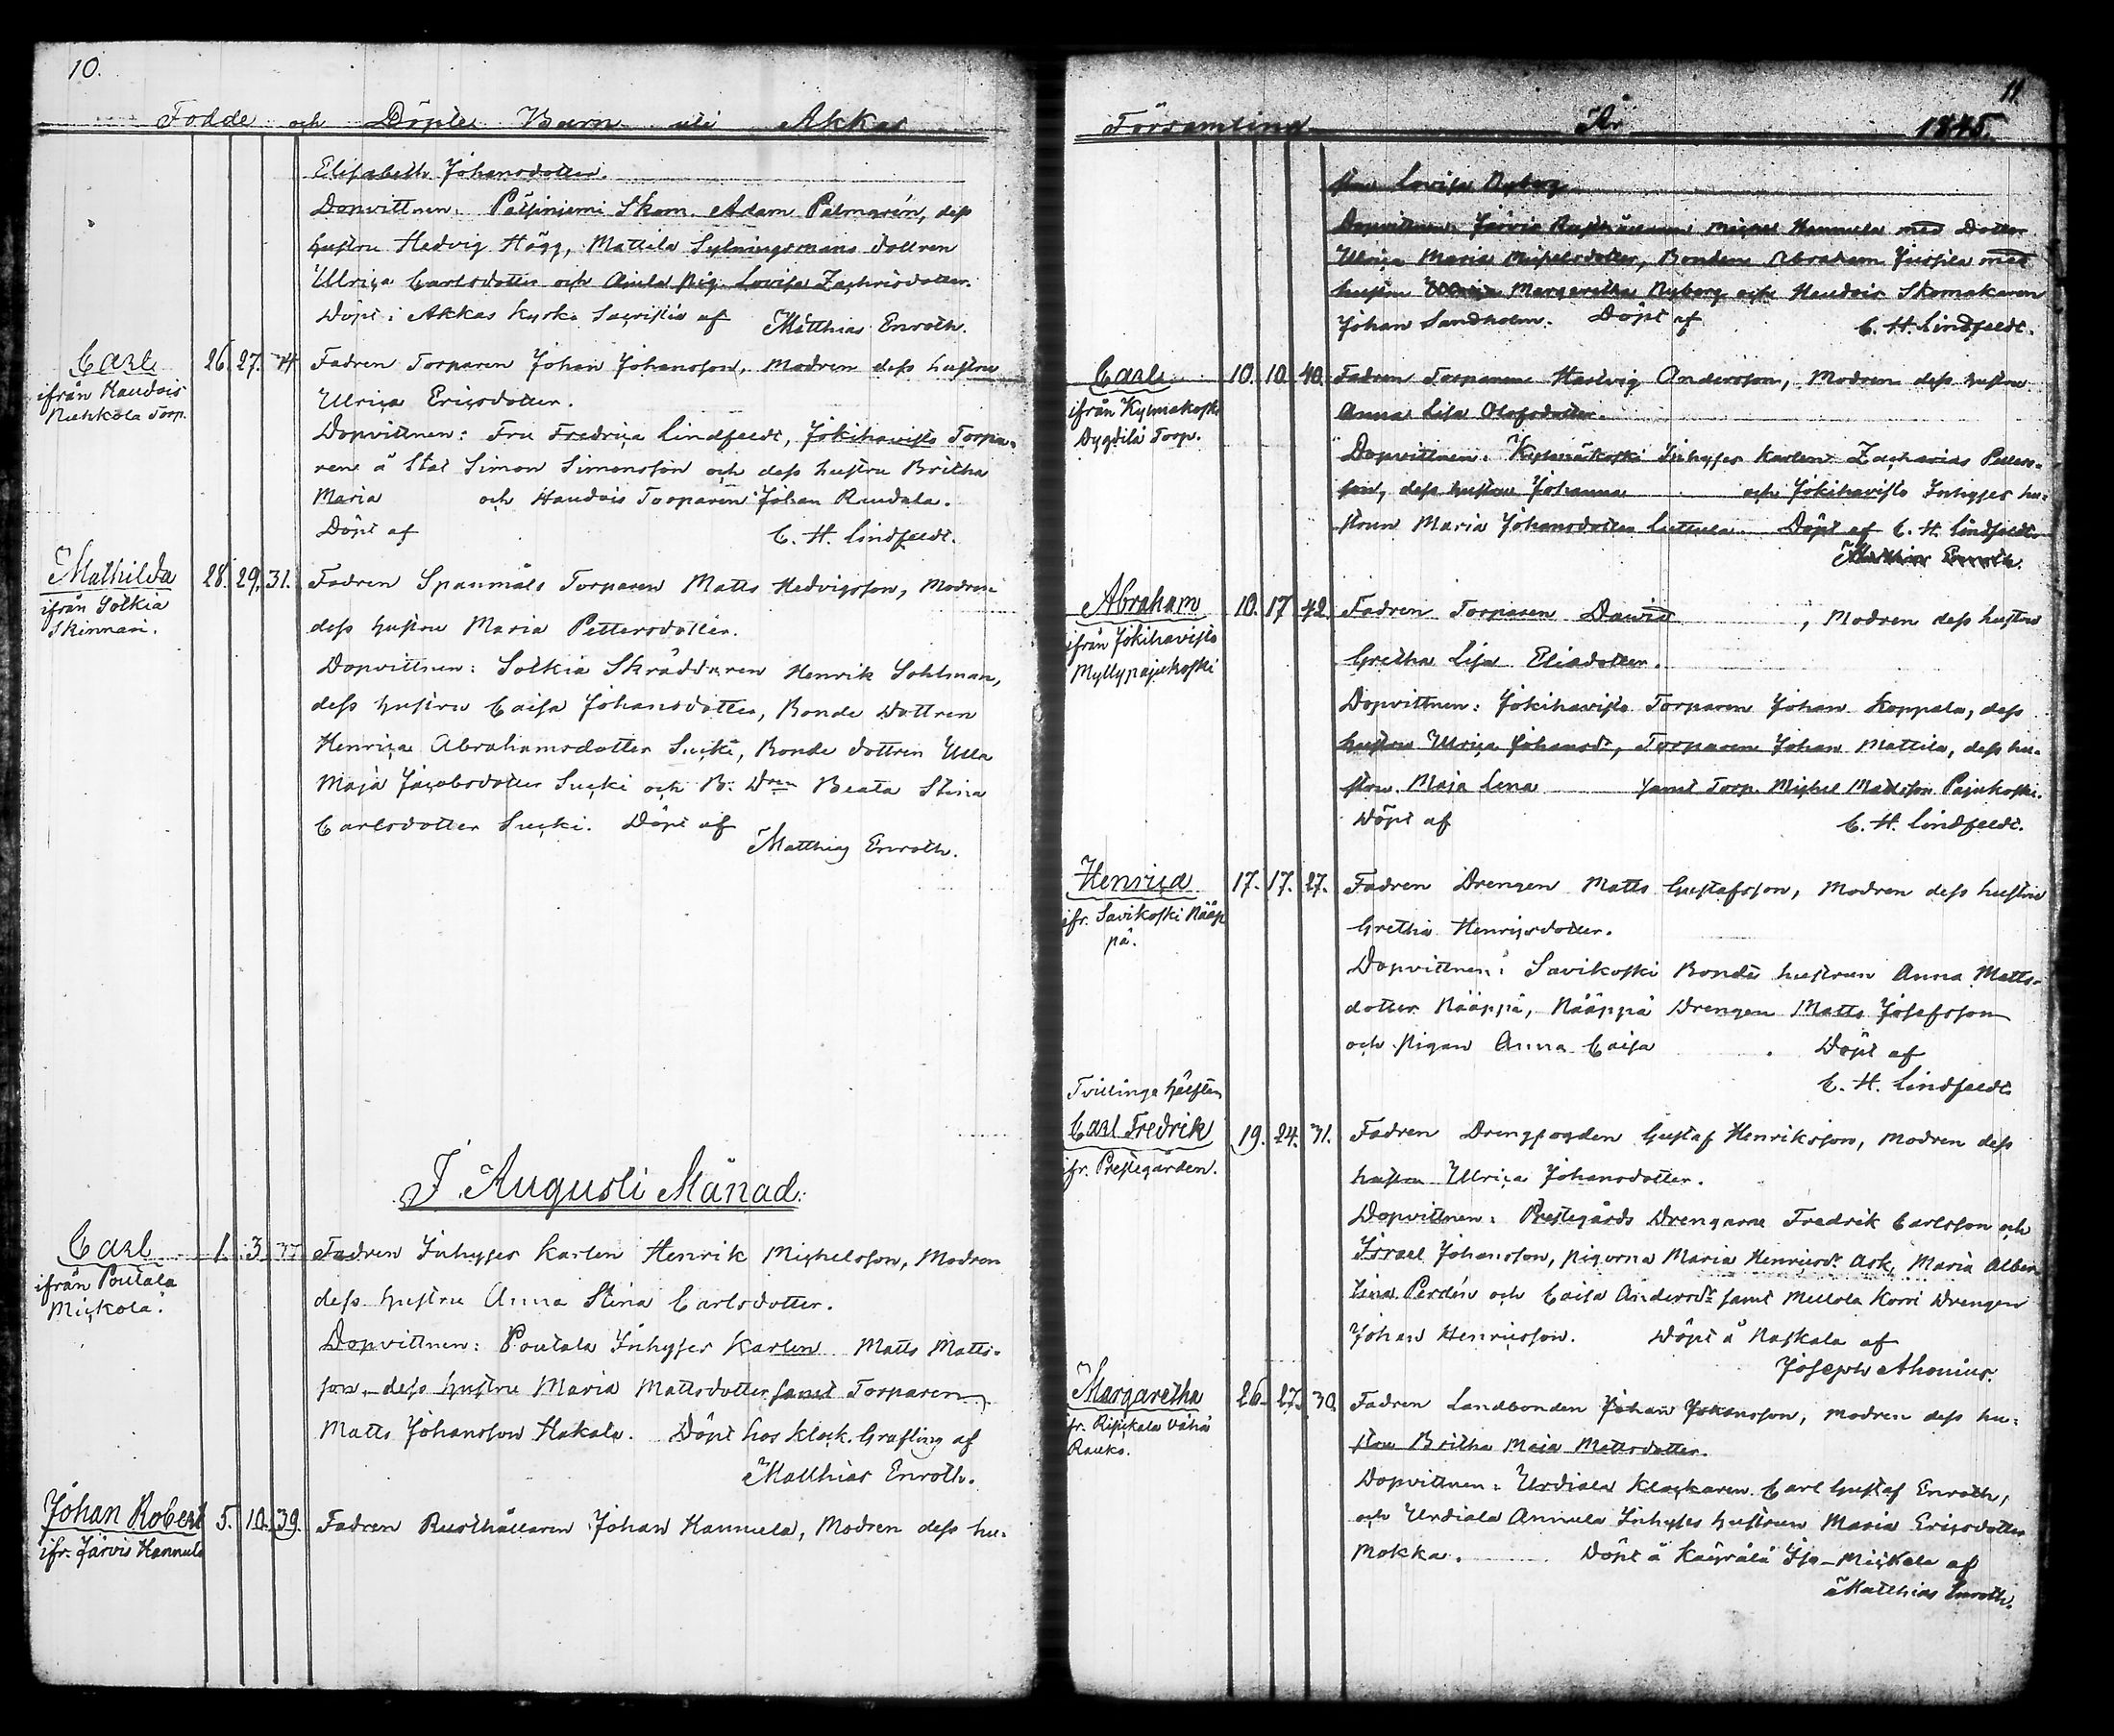 10.
Födde och Döpte Barn uti Akkas
Elisabeth Johansdotter.
Dopvittnen: Pätsiniemi Skom. Adam Palmarén, dess
hustru Hedvig Hägg, Mattila Sytningsmans dottren
Ulrica Carlsdotter och Anila Pig. Lovisa Zachrisdotter.
Döpt i Akkas Kyrko Sacristia af Matthias Enroth.
Carl 26. 27. 34 Fadren Torparen Johan Johansson, Modren dess hustru
ifrån Haudois
Nuhkola Torp.
Ulrica Ericsdotter.
Dopvittnen: Fru Fredrica Lindfeldt, Jokihavisto Torpa-
ren å Stat Simon Simonsson och dess hustru Britha
Maria och Haudois Torparen Johan Rundala.
Döpt af C. H. Lindfeldt.
Mathilda 28. 29. 31. Fadren Spanmåls Torparen Matts Hedvigsson, Modren
ifrån Sotkia
Skinnari.
dess hustru Maria Pettersdotter.
Dopvittnen: Sotkia Skräddaren Henrik Sohlman,
dess hustru Caisa Johansdotter, Bonde Dottren
Henrica Abrahamsdotter Sucki, Bonde dottren Ulla
Maja Jacobsdotter Sucki och B. Dren Beata Stina
Carlsdotter Sucki. Döpt af
Matthias Enroth.
I Augusti Månad.
Carl 1. 3. Fadren Inhyses Karlen Henrik Michelsson, Modren
ifrån Poutala
Mickola.
dess hustru Anna Stina Carlsdotter.
Dopvittnen: Poutala Inhyses Karlen Matts Matts-
son, dess hustru Maria Mattsdotter samt Torparen
Matts Johansson Hakala. Döpt hos Klock. Grafling af
Matthias Enroth.
Johan Robert 5. 10. 39. Fadren Rusthållaren Johan Hannula, Modren dess hu-
ifr. Jarvis Hannula
11.
Församling År 1845.
stru Lovisa Nyberg
Dopvittnen: Jarvis Rusthållaren Michel Hannula med Dotter
Ulrica Maria Michelsdotter, Bonden Abraham Jussila med
hustru Margaretha Nyberg och Haudois Skomakaren
Johan Sandholm. Döpt af C. H. Lindfeldt.
Carl 10. 10. 40. Fadren Torparen Hartvig Andersson, Modren dess hustru
ifrån Kylmakoski
Dygdilä Torp.
Anna Lisa Olofsdotter.
Dopvittnen: Kylmäkoski Inhyses Karlen Zacharias Peters-
son, dess hustru Johanna och Jokihavisto Inhyses hu-
strun Maria Johansdotter Luttula. Döpt af C. H. Lindfeldt
Matthias Enroth.
Abraham 10. 17. 42. Fadren Torparen David , Modren dess hustru
ifrån Jokihavisto
Myllypajukoski
Gretha Lisa Eliædotter.
Dopvittnen: Jokihavisto Torparen Johan Koppala, dess
hustru Ulrica Johansdr, Torparen Johan Mattila, dess hu-
stru Maja Lena samt Torp. Michel Mattsson Pajukoski.
Döpt af C. H. Lindfeldt.
Henrica 17. 17. 27. Fadren Drengen Matts Gustafsson, Modren dess hustru
ifr. Savikoski Nääp
pä.
Gretha Henricsdotter.
Dopvittnen: Savikoski Bonde hustrun Anna Matts-
dotter Nääppä, Nääppä Drengen Matts Josefsson
och Pigan Anna Caisa . Döpt af
C. H. Lindfeldt.
Tvillinge hälften
Carl Fredrik 19. 24. 31. Fadren Drengfogden Gustaf Henriksson, Modren dess
ifr. Prestegården.
hustru Ulrica Johansdotter.
Dopvittnen: Prestegårds Drengarne Fredrik Carlsson och
Israel Johansson, Pigorna Maria Henricsdr Ask, Maria Alber
tina Perdén och Caisa Andersdr samt Mellola Korri Drengen
Johan Henricsson. Döpt å Naskala af
Joseph Ahonius.
Margaretha 26. 27. 30. Fadren Landbonden Johan Johansson, Modren dess hu-
fr. Ripickala Vähä
Rauko.
stru Britha Maja Mattsdotter.
Dopvittnen: Urdiala Klockaren Carl Gustaf Enroth,
och Urdiala Annula Inhyses hustrun Maria Ericsdotter
Mokka. Döpt å Kaÿrälä Iso-Mickola af
Matthias Enroth.